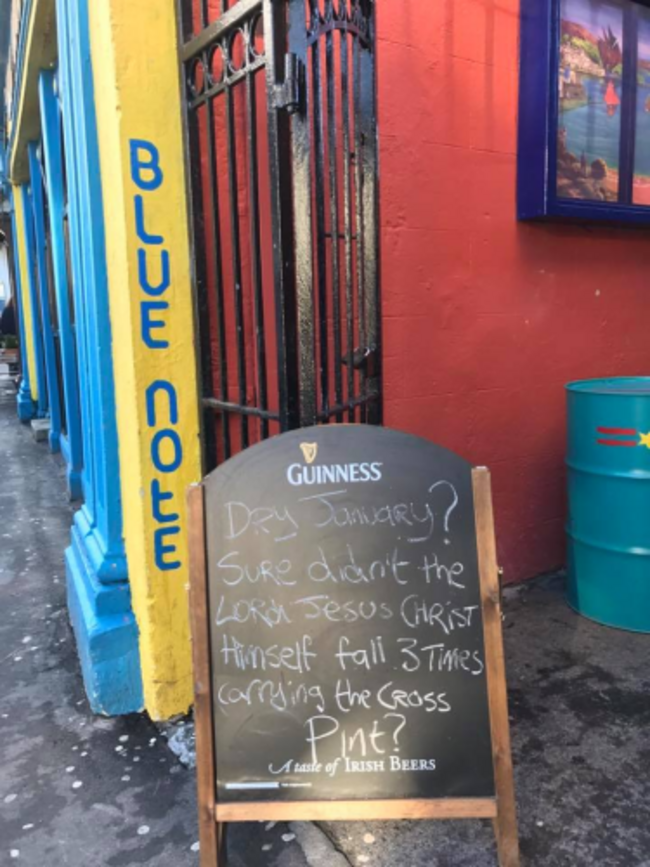 BLUE NOTE
GUINNESS
Dry January?
Sure didn't the
LORD JESUS CHRIST
Himself fall 3 Times
carrying the Cross
Pint?
A taste of IRISH BEERS